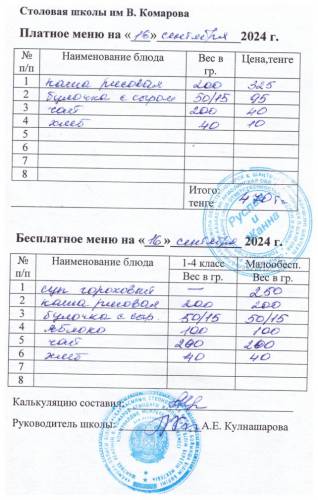 Столовая школы им В. Комарова
Платное меню на «16» сентября 2024 г.
№ п/п Наименование блюда Вес в гр. Цена,тенге
1 каша рисовая 200 325
2 булочка с сыром 50/15 95
3 чай 200 40
4 хлеб 40 10
5
6
7
8
Итого: тенге 470 тг
Руслан и Жанна
Бесплатное меню на «16» сентября 2024 г.
№ п/п Наименование блюда 1-4 классе Малообесп.
Вес в гр. Вес в гр.
1 суп гороховый — 250
2 каша рисовая 200 200
3 булочка с сыр. 50/15 50/15
4 яблоко 100 100
5 чай 200 200
6 хлеб 40 40
7
8
Калькуляцию составил:
Руководитель школы: А.Е. Кулнашарова